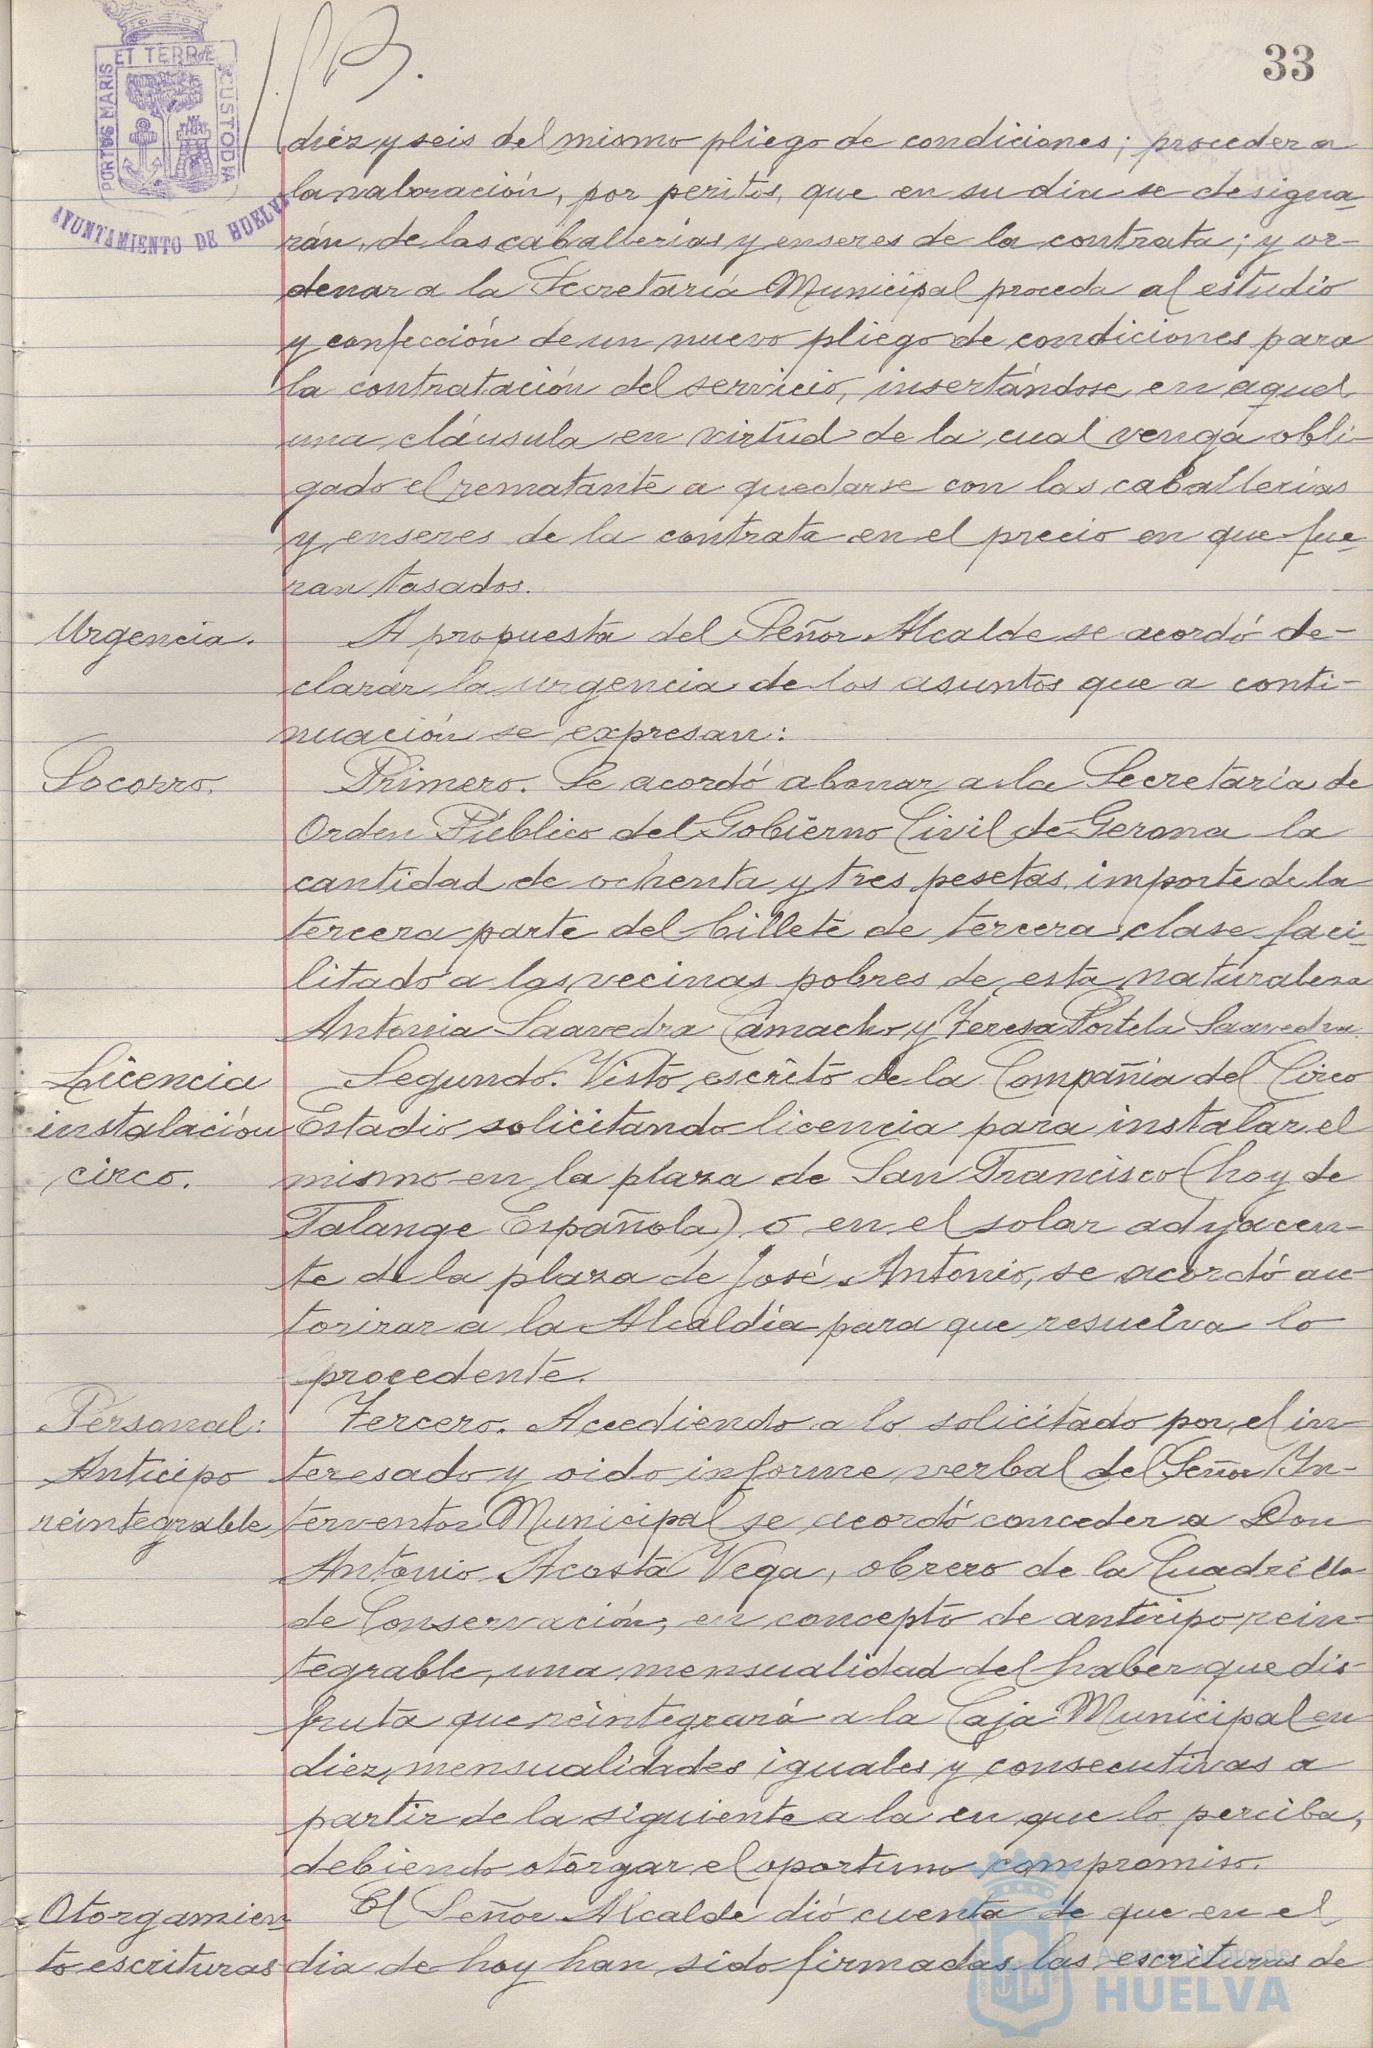 33
PORTUS MARIS ET TERRÆ CUSTODIA
AYUNTAMIENTO DE HUELVA
diéz y seis del mismo pliego de condiciones; proceder a
la valoración, por peritos, que en su dia se designa-
rán, de las caballerias y enseres de la contrata; y or-
denar a la Secretaría Municipal proceda al estudio
y confección de un nuevo pliego de condiciones para
la contratación del servicio, insertándose en aquel
una cláusula en virtud de la cual venga obli-
gado el rematante a quedarse con las caballerias
y enseres de la contrata en el precio en que fue-
ran tasados.
Urgencia. A propuesta del Señor Alcalde se acordó de-
clarar la urgencia de los asuntos que a conti-
nuación se expresan:
Socorro. Primero. Se acordó abonar a la Secretaría de
Orden Público del Gobierno Civil de Gerona la
cantidad de ochenta y tres pesetas importe de la
tercera parte del billete de tercera clase faci-
litado a las vecinas pobres de esta naturaleza
Antonia Saavedra Camacho y Teresa Portela Saavedra.
Licencia Segundo. Visto escrito de la Compañia del Circo
instalación Estadio solicitando licencia para instalar el
circo. mismo en la plaza de San Francisco (hoy de
Falange Española) o en el solar adyacen-
te de la plaza de José Antonio, se acordó au-
torizar a la Alcaldía para que resuelva lo
procedente.
Personal: Tercero. Accediendo a lo solicitado por el in-
Anticipo teresado y oido informe verbal del Señor In-
reintegrable terventor Municipal se acordó conceder a Don
Antonio Acosta Vega, obrero de la Cuadrilla
de Conservación, en concepto de anticipo rein-
tegrable, una mensualidad del haber que dis-
fruta que reintegrará a la Caja Municipal en
diez mensualidades iguales y consecutivas a
partir de la siguiente a la en que lo perciba,
debiendo otorgar el oportuno compromiso.
Otorgamien- El Señor Alcalde dió cuenta de que en el
to escrituras dia de hoy han sido firmadas las escrituras de
Ayuntamiento de
HUELVA